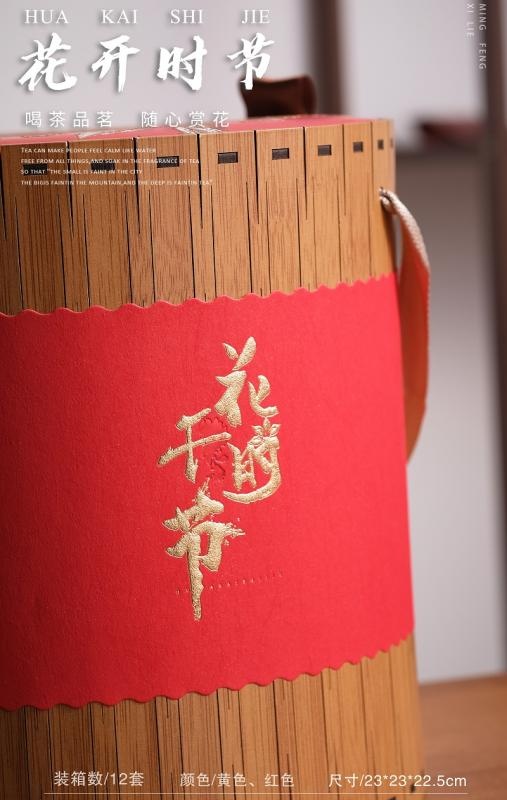 HUA KAI SHI JIE
花开时节
喝茶品茗 随心赏花
TEA CAN MAKE PEOPLE FEEL CALM LIKE WATER
FREE FROM ALL THINGS,AND SOAK IN THE FRAGRANCE OF TEA
SO THAT "THE SMALL IS FAINT IN THE CITY
THE BIGIS FAINTIN THE MOUNTAIN,AND THE DEEP IS FAINTIN TEA"
MING FENG
XI LIE
花
开
时
节
装箱数/12套 颜色/黄色、红色 尺寸/23*23*22.5cm